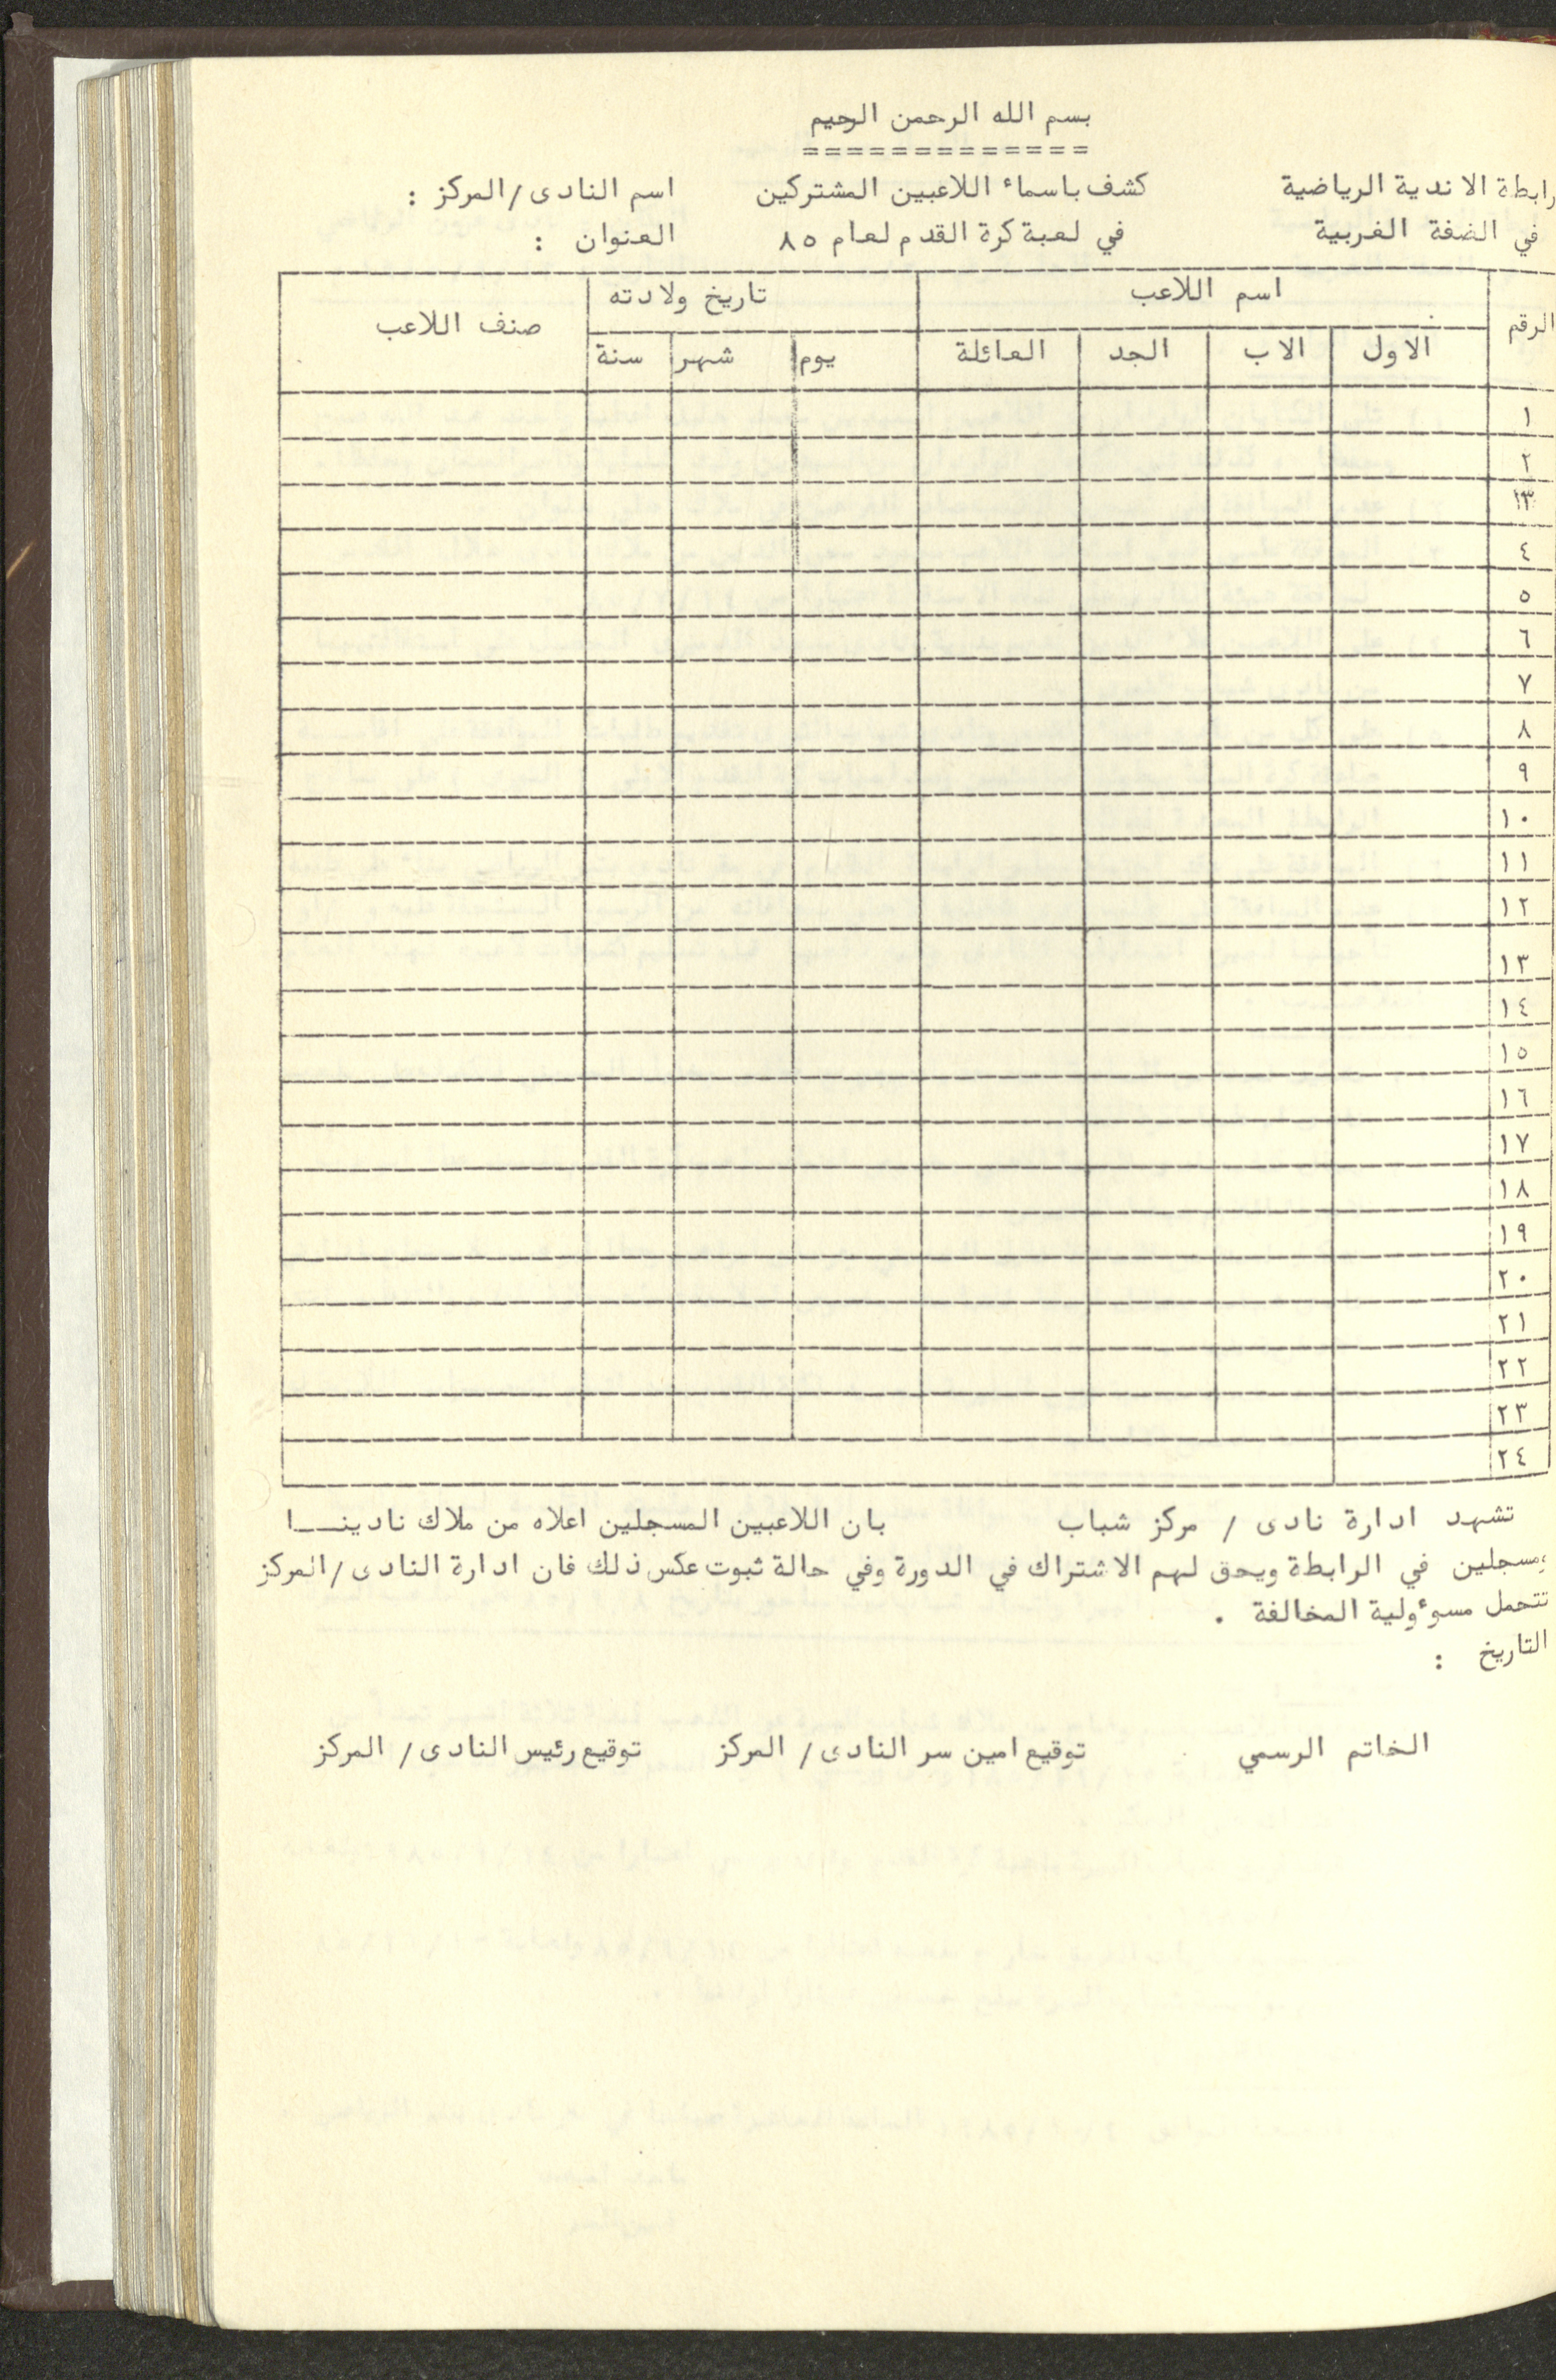 بسم الله الرحمن الرحيم
=============
رابطة الاندية الرياضية كشف باسماء اللاعبين المشتركين اسم النادى/المركز :
في الضفة الغربية في لعبة كرة القدم لعام ٨٥ العنوان :
الرقم اسم اللاعب تاريخ ولادته صنف اللاعب
الاول الاب الجد العائلة يوم شهر سنة
١
٢
٣
٤
٥
٦
٧
٨
٩
١٠
١١
١٢
١٣
١٤
١٥
١٦
١٧
١٨
١٩
٢٠
٢١
٢٢
٢٣
٢٤
تشهد ادارة نادى / مركز شباب بان اللاعبين المسجلين اعلاه من ملاك نادينـــا
ومسجلين في الرابطة ويحق لهم الاشتراك في الدورة وفي حالة ثبوت عكس ذلك فان ادارة النادى/المركز
تتحمل مسوءولية المخالفة .
التاريخ :
الخاتم الرسمي توقيع امين سر النادى/ المركز توقيع رئيس النادى/ المركز